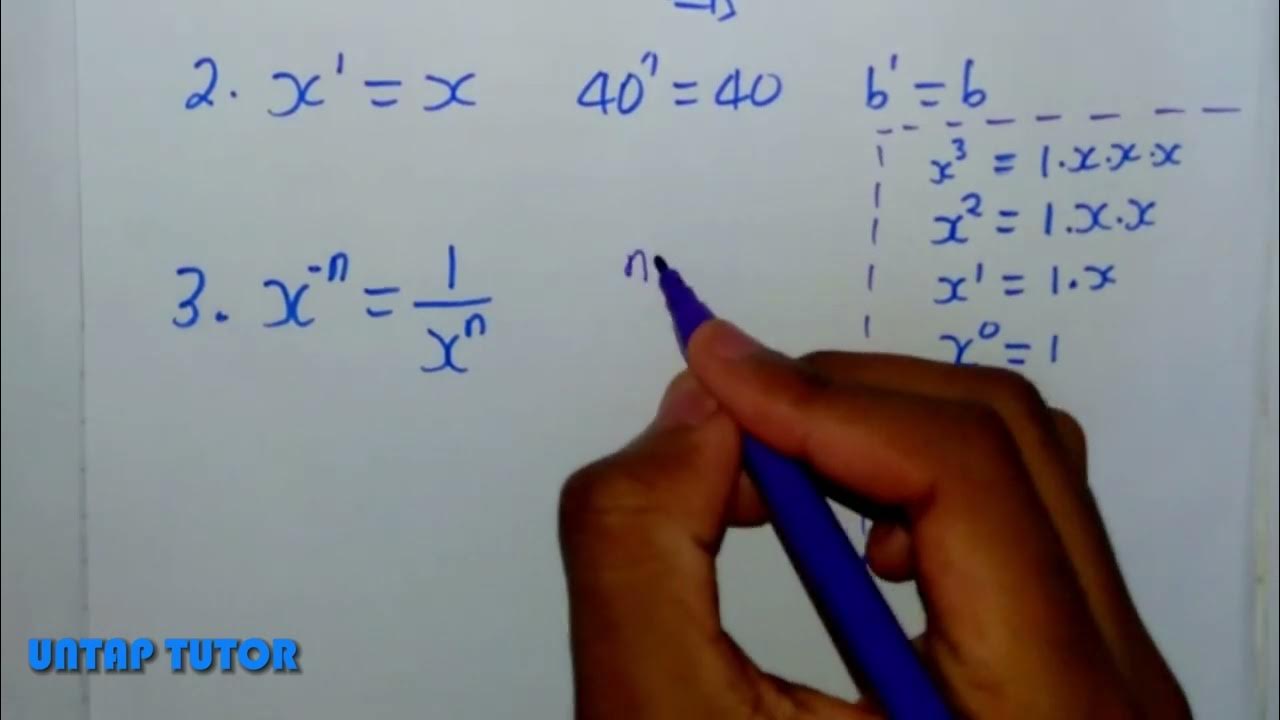 2. x¹ = x 40¹ = 40 b¹ = b
x³ = 1.x.x.x
x² = 1.x.x
x¹ = 1.x
x⁰ = 1
3. x⁻ⁿ = 1/xⁿ n
UNTAP TUTOR